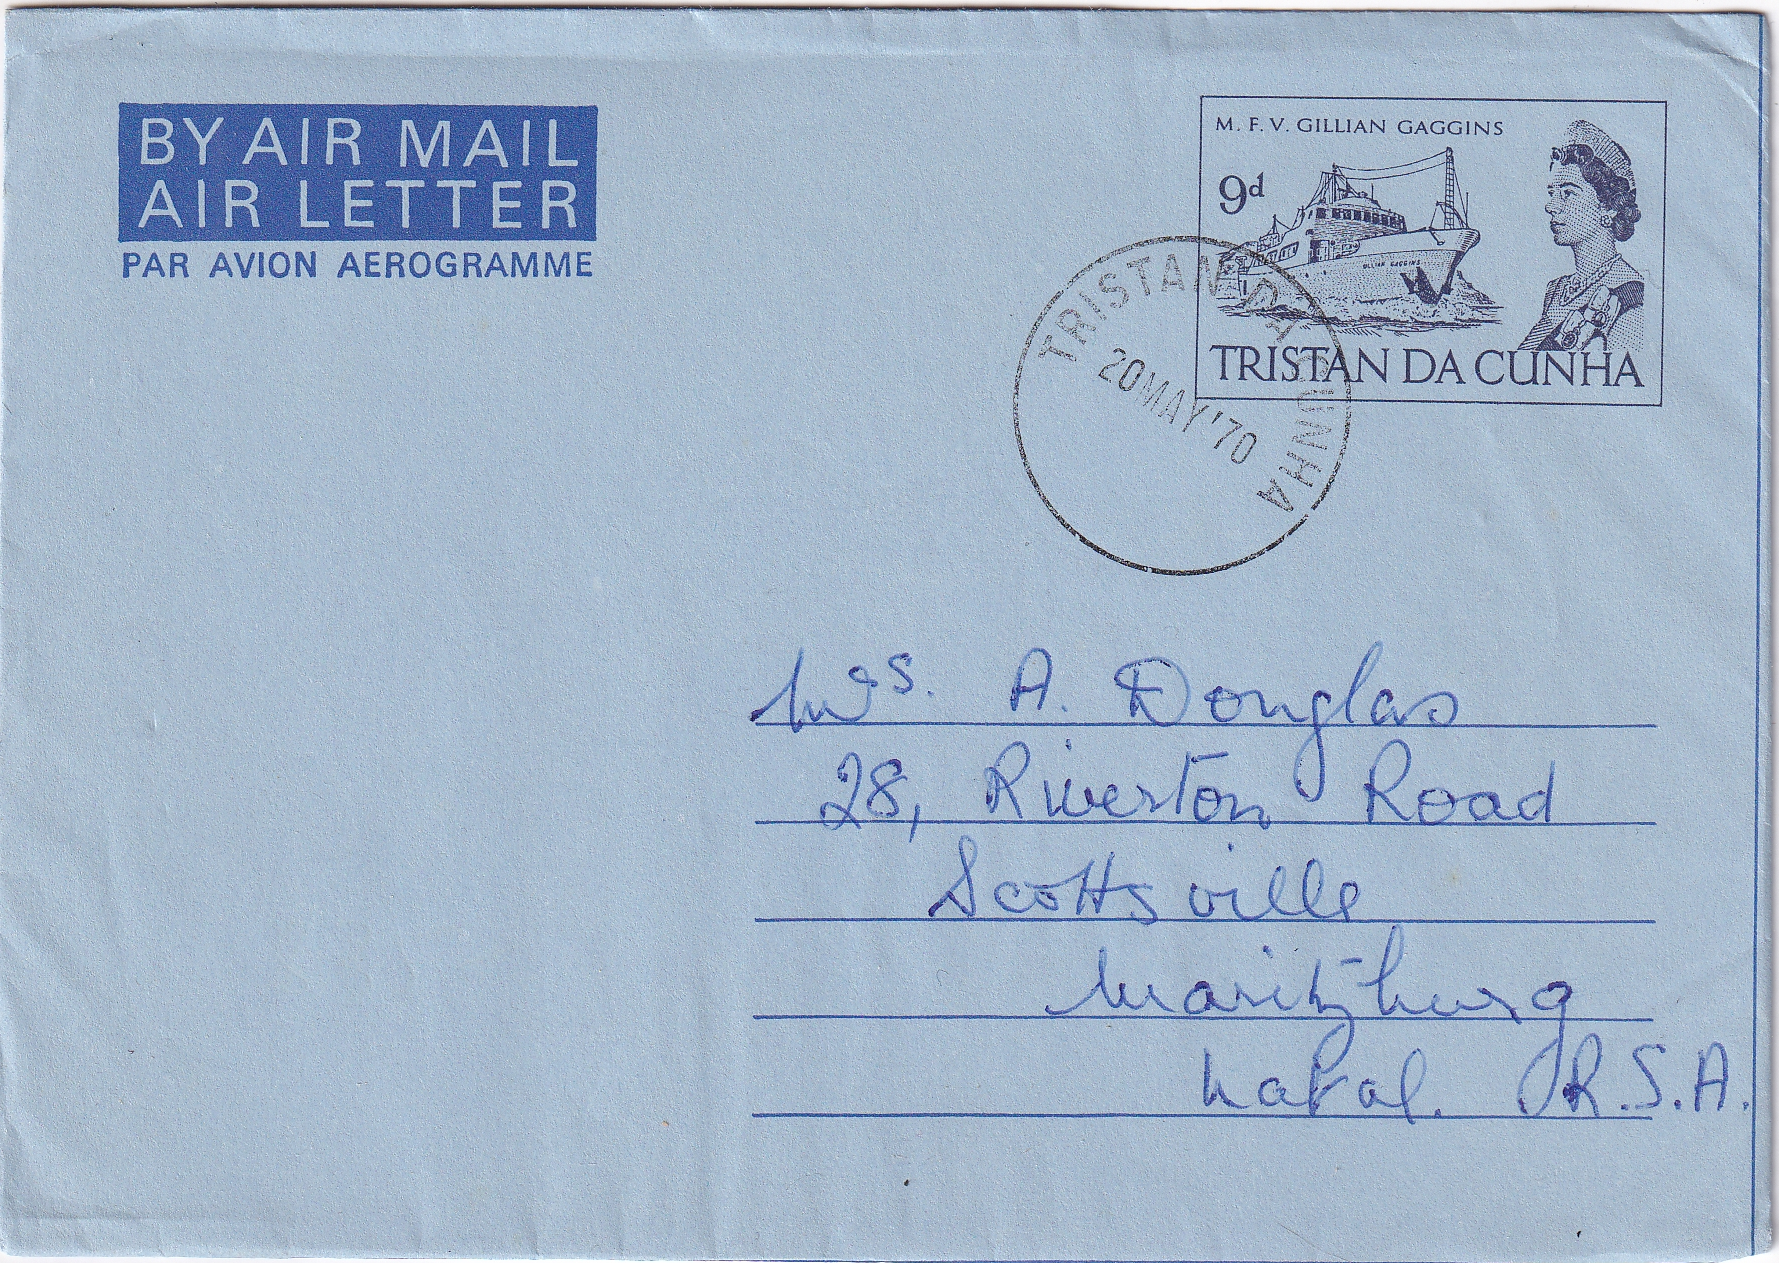 BY AIR MAIL
AIR LETTER
PAR AVION AEROGRAMME
M. F. V. GILLIAN GAGGINS
9d
GILLIAN GAGGINS
TRISTAN DA CUNHA
TRISTAN DA CUNHA
20 MAY '70
Mrs. A. Douglas
28, Riverton Road
Scottsville
Maritzburg
Natal. R.S.A.